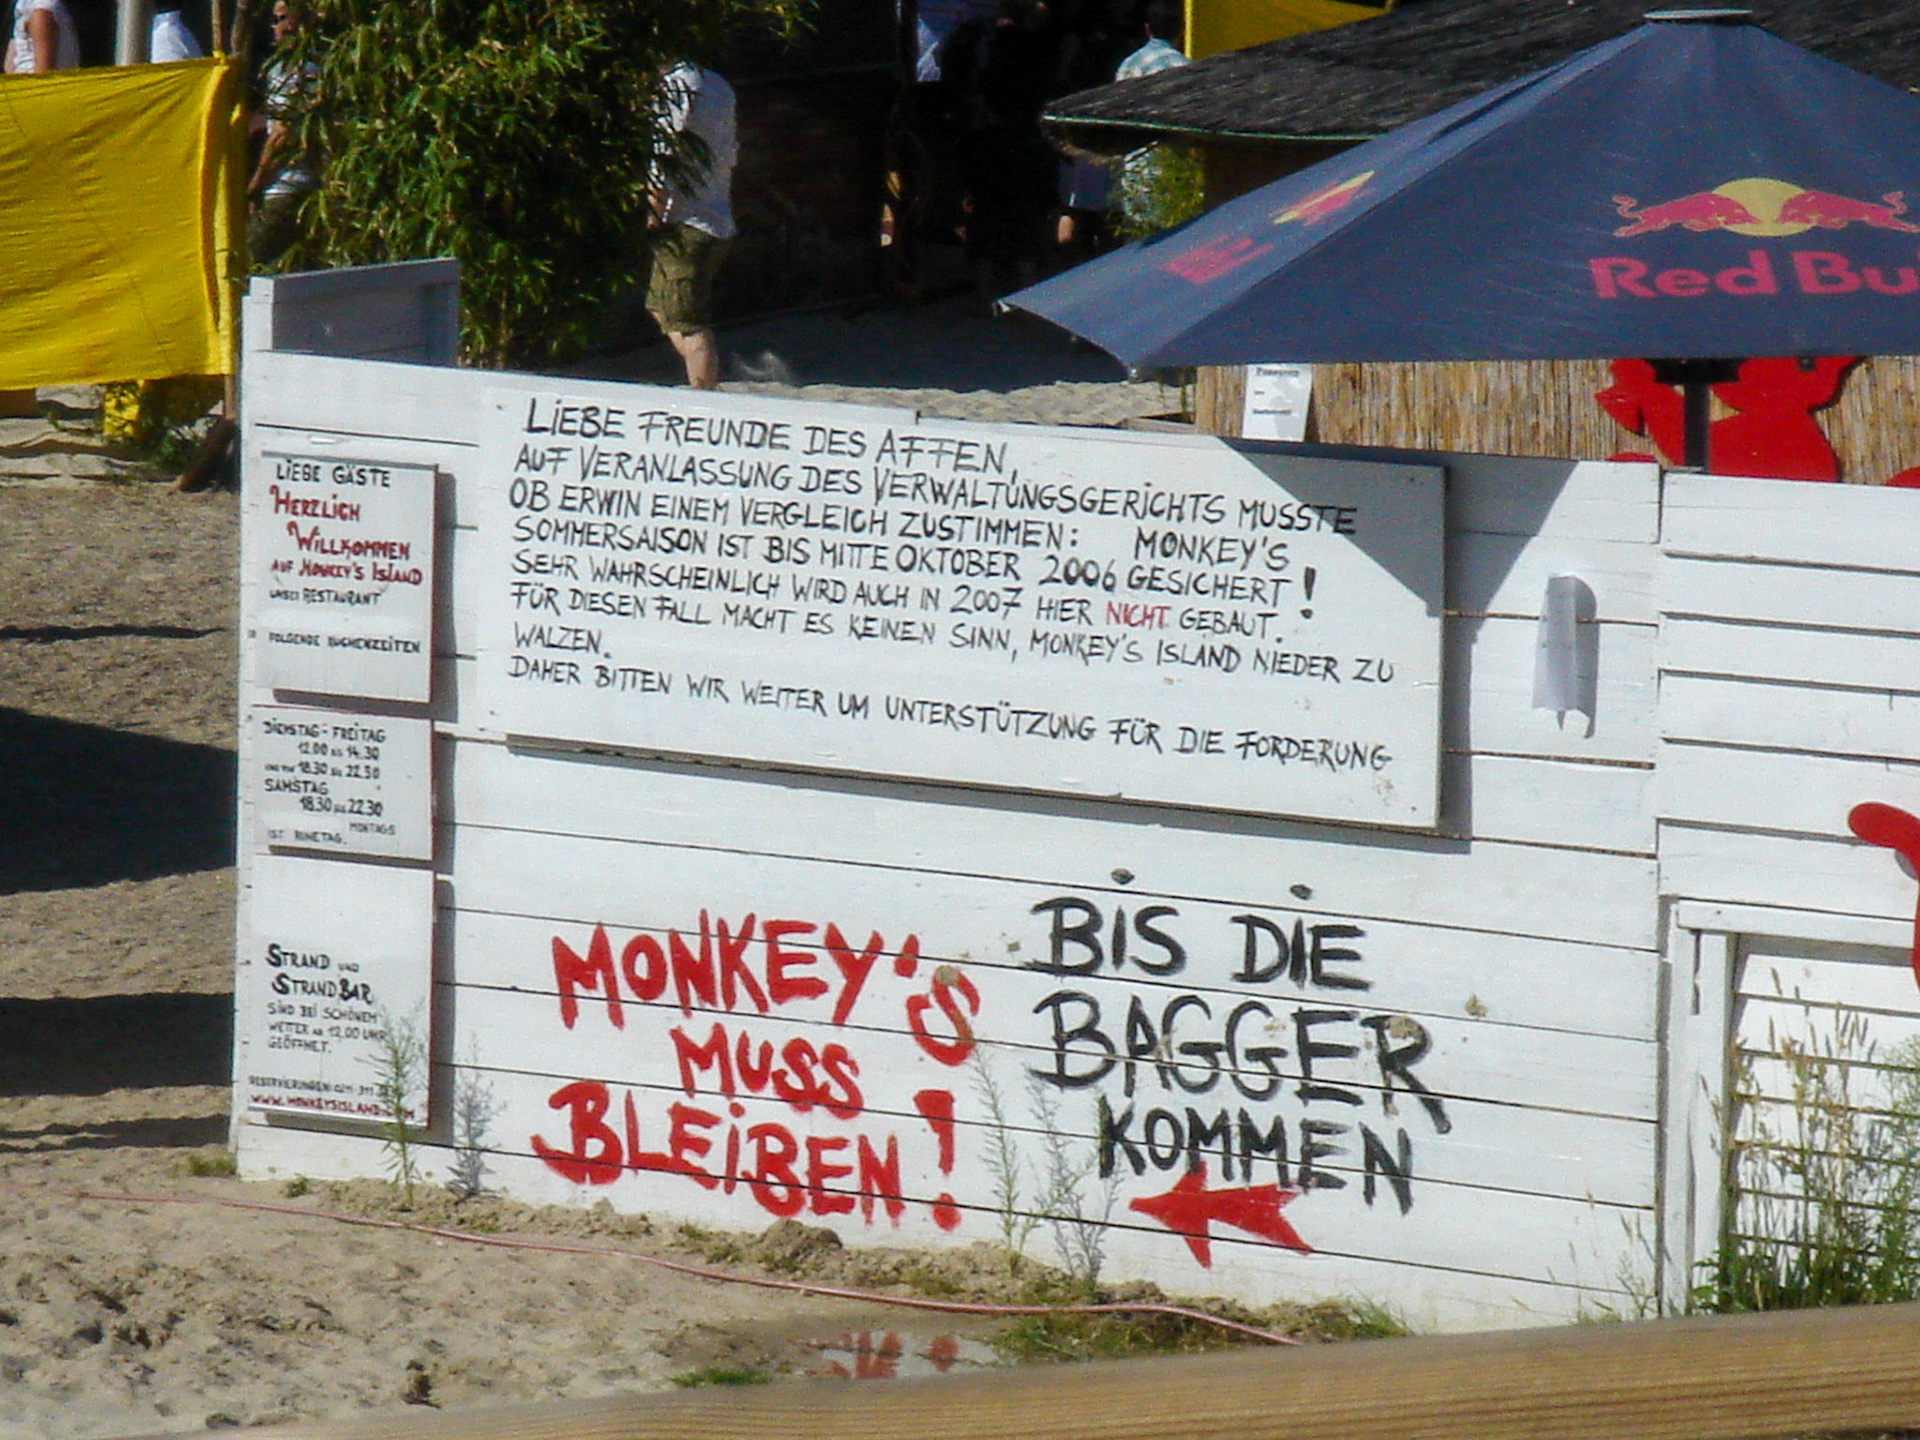 Red Bu
LIEBE FREUNDE DES AFFEN,
AUF VERANLASSUNG DES VERWALTUNGSGERICHTS MUSSTE
OB ERWIN EINEM VERGLEICH ZUSTIMMEN: MONKEY'S
SOMMERSAISON IST BIS MITTE OKTOBER 2006 GESICHERT!
SEHR WAHRSCHEINLICH WIRD AUCH IN 2007 HIER NICHT GEBAUT.
FÜR DIESEN FALL MACHT ES KEINEN SINN, MONKEY'S ISLAND NIEDER ZU
WALZEN.
DAHER BITTEN WIR WEITER UM UNTERSTÜTZUNG FÜR DIE FORDERUNG
LIEBE GÄSTE
HERZLICH
WILLKOMMEN
AUF MONKEY'S ISLAND
UNSER RESTAURANT
FOLGENDE KÜCHENZEITEN
DIENSTAG - FREITAG
12.00 BIS 14.30
18.30 BIS 22.30
SAMSTAG
18.30 BIS 22.30
MONTAGS
IST RUHETAG.
STRAND UND
STRANDBAR
SIND BEI SCHÖNEM
WETTER AB 12.00 UHR
GEÖFFNET.
RESERVIERUNGEN: 0211-311
WWW.MONKEYSISLAND.COM
MONKEY'S
MUSS
BLEIBEN!
BIS DIE
BAGGER
KOMMEN